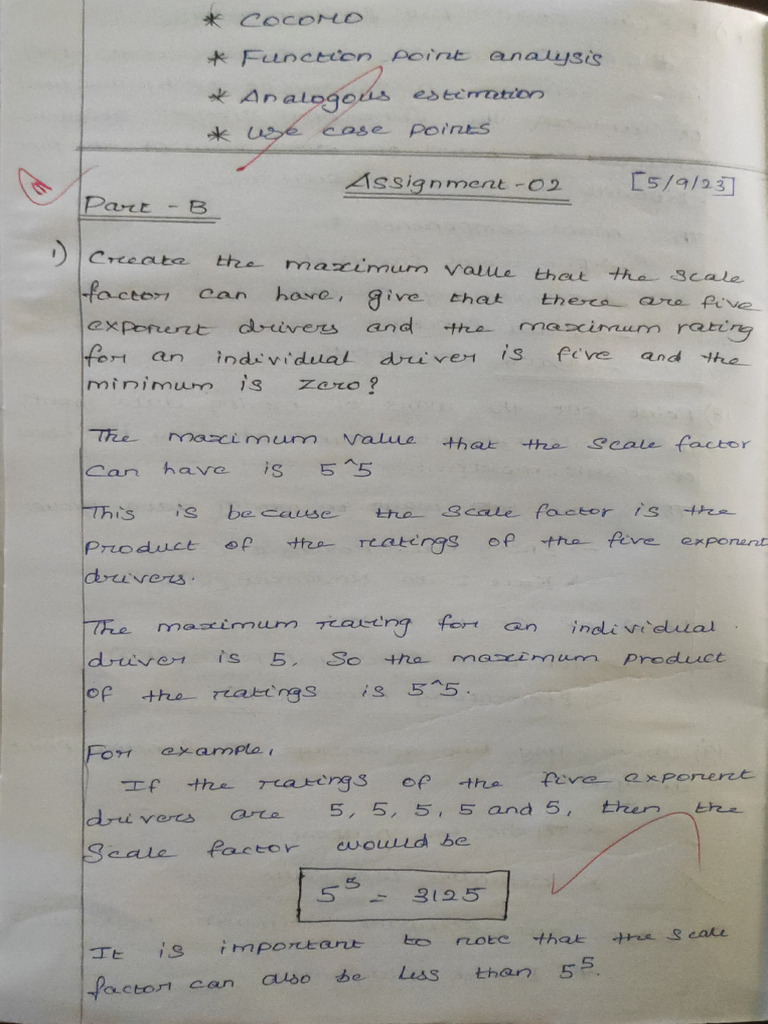 * COCOMO
* Function point analysis
* Analogous estimation
* Use case points
Assignment-02 [5/9/23]
Part - B
1) Create the maximum value that the scale
factor can have, give that there are five
exponent drivers and the maximum rating
for an individual driver is five and the
minimum is zero?
The maximum value that the scale factor
can have is 5^5
This is because the scale factor is the
product of the ratings of the five exponent
drivers.
The maximum rating for an individual
driver is 5. So the maximum product
of the ratings is 5^5.
For example,
If the ratings of the five exponent
drivers are 5, 5, 5, 5 and 5, then the
Scale factor would be
5⁵ = 3125
It is important to note that the scale
factor can also be less than 5⁵.